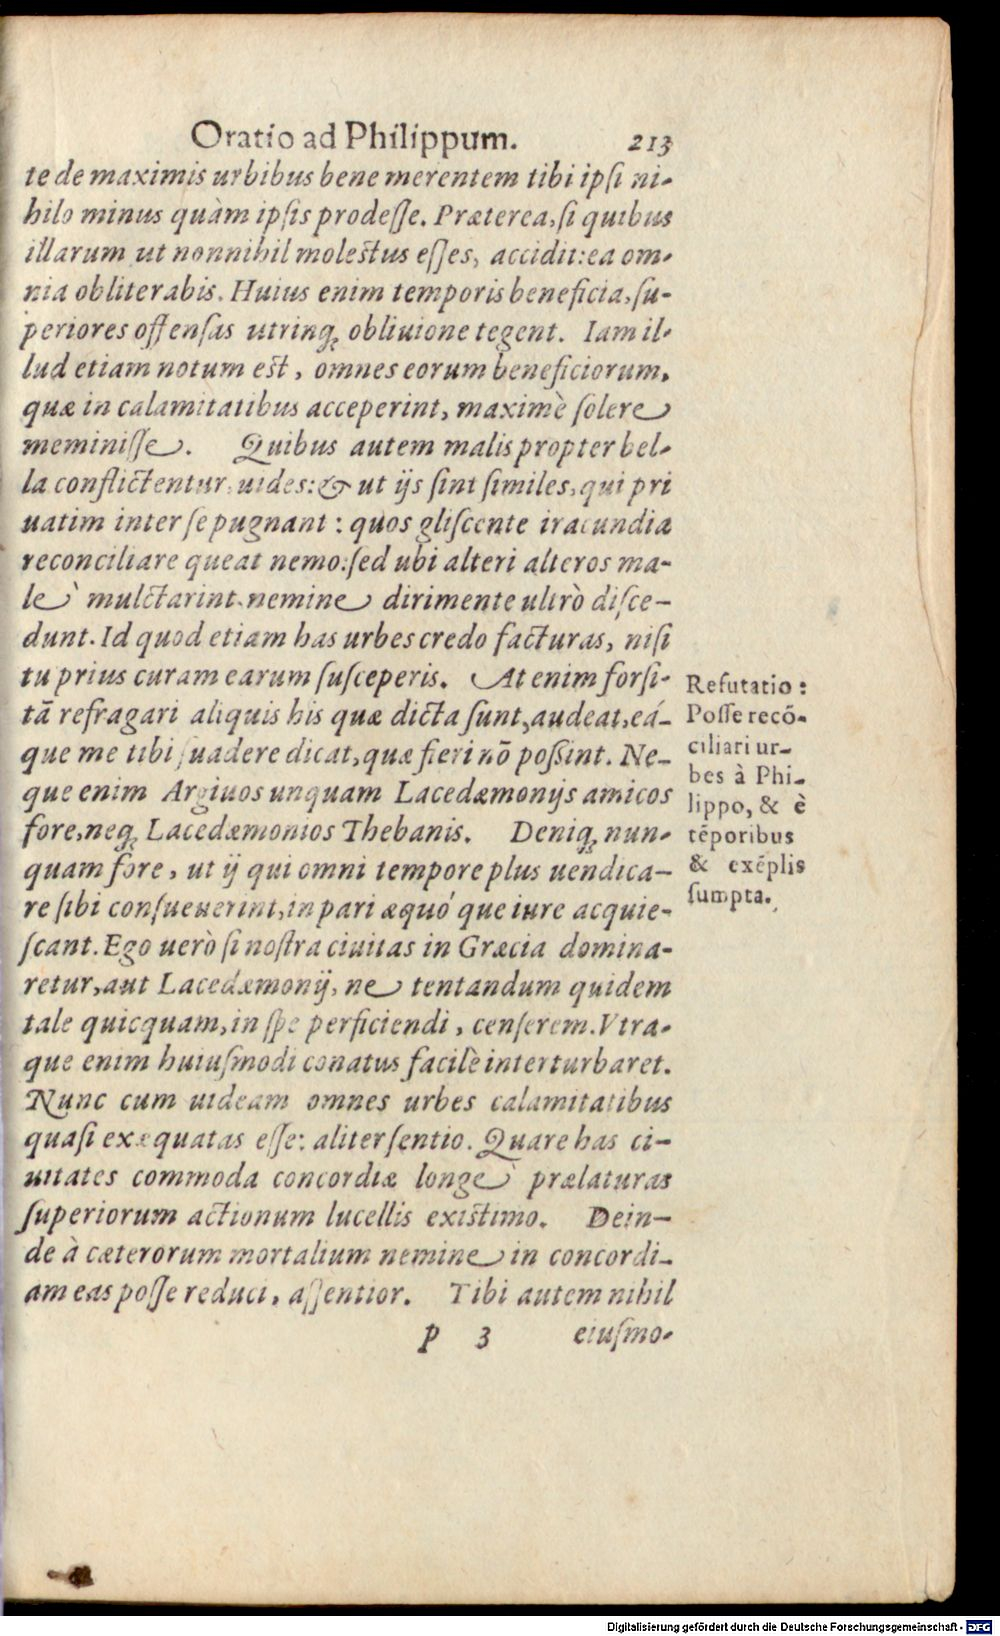 Oratio ad Philippum. 213
te de maximis urbibus bene merentem tibi ipſi ni-
hilo minus quàm ipſis prodeſſe. Præterea, ſi quibus
illarum ut nonnihil moleſtus eſſes, accidit: ea om-
nia obliterabis. Huius enim temporis beneficia, ſu-
periores offenſas utrinq; obliuione tegent. Iam il-
lud etiam notum eſt, omnes eorum beneficiorum,
quæ in calamitatibus acceperint, maximè ſolere
meminiſſe. Quibus autem malis propter bel-
la conflictentur, uides: & ut ijs ſint ſimiles, qui pri
uatim inter ſe pugnant: quos gliſcente iracundia
reconciliare queat nemo: ſed ubi alteri alteros ma-
lè mulctarint, nemine dirimente ultrò diſce-
dunt. Id quod etiam has urbes credo facturas, niſi
tu prius curam earum ſuſceperis. At enim forſi-
tã refragari aliquis his quæ dicta ſunt, audeat, eá-
que me tibi ſuadere dicat, quæ fieri nõ poſſint. Ne-
que enim Argiuos unquam Lacedæmonijs amicos
fore, neq; Lacedæmonios Thebanis. Deniq; nun-
quam fore, ut ij qui omni tempore plus uendica-
re ſibi conſueuerint, in pari æquó que iure acquie-
ſcant. Ego uerò ſi noſtra ciuitas in Græcia domina-
retur, aut Lacedæmonij, ne tentandum quidem
tale quicquam, in ſpe perficiendi, cenſerem. Vtra-
que enim huiuſmodi conatus facilè interturbaret.
Nunc cum uideam omnes urbes calamitatibus
quaſi exæquatas eſſe: aliter ſentio. Quare has ci-
uitates commoda concordiæ longè prælaturas
ſuperiorum actionum lucellis exiſtimo. Dein-
de à cæterorum mortalium nemine in concordi-
am eas poſſe reduci, aſſentior. Tibi autem nihil
p 3 eiuſmo-
Refutatio:
Poſſe recõ-
ciliari ur-
bes à Phi-
lippo, & è
tẽporibus
& exẽplis
ſumpta.
Digitalisierung gefördert durch die Deutsche Forschungsgemeinschaft - DFG